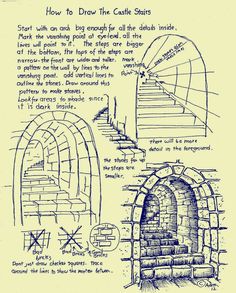 How to Draw The Castle Stairs
Start with an arch big enough for all the details inside.
Mark the vanishing point at eye level. all the
lines will point to it. The steps are bigger
at the bottom, the tops of the steps are
narrow. the front are wider and taller.
a pattern on the wall by lines to the
vanishing point. add vertical lines to
outline the stones. Draw around this
pattern to make stones.
Look for areas to shade since
it is dark inside.
mark
vanishing
Point
there will be more
detail in the foreground.
the stones far up
the steps are
smaller.
Dont just draw checked squares. trace
around the lines to show the mortar between.